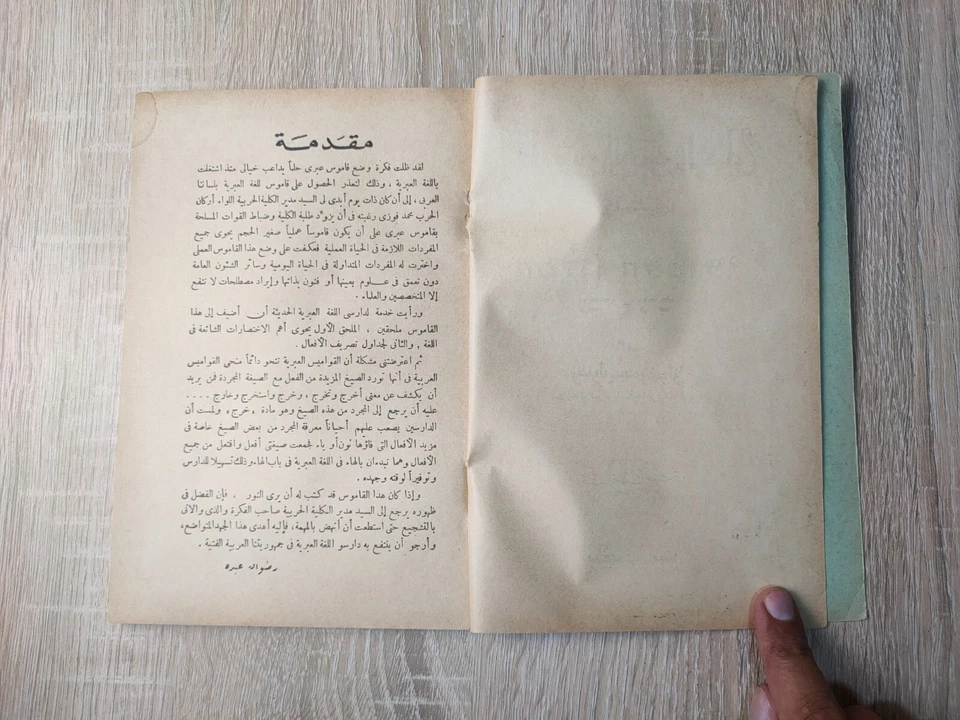 مقدمة
لقد ظلت فكرة وضع قاموس عبرى حلماً يداعب خيالى منذ اشتغلت
باللغة العبرية ، وذلك لتعذر الحصول على قاموس للغة العبرية بلساننا
العربى ، إلى أن كان ذات يوم أبدى لى السيد مدير الكلية الحربية اللواء أركان
الحرب محمد فوزى رغبته فى أن يزود طلبة الكلية وضباط القوات المسلحة
بقاموس عبرى على أن يكون قاموساً عملياً صغير الحجم يحوى جميع
المفردات اللازمة فى الحياة العملية فعكفت على وضع هذا القاموس العملى
واخترت له المفردات المتداولة فى الحياة اليومية وسائر الشئون العامة
دون تعمق فى علوم بعينها أو فنون بذاتها وإيراد مصطلحات لا تنفع
إلا المتخصصين والعلماء .
ورأيت خدمة لدارسى اللغة العبرية الحديثة أن أضيف إلى هذا
القاموس ملحقين ، الملحق الأول يحوى أهم الاختصارات الشائعة فى
اللغة , والثانى لجداول تصريف الأفعال .
ثم اعترضتنى مشكلة أن القواميس العبرية تنحو دائماً منحى القواميس
العربية فى أنها تورد الصيغ المزيدة من الفعل مع الصيغة المجردة فمن يريد
أن يكشف عن معنى أخرج وتخرج ، وخرج واستخرج وخارج ....
عليه أن يرجع إلى المجرد من هذه الصيغ وهو مادة , خرج، ولمست أن
الدارسين يصعب عليهم أحياناً معرفة المجرد من بعض الصيغ خاصة فى
مزيد الأفعال التى فاؤها نون أو ياء فجمعت صيغتى أفعل وافتعل من جميع
الأفعال وهما تبدءان بالهاء فى اللغة العبرية فى باب الهاء وذلك تسهيلا للدارس
وتوفيراً لوقته وجهده .
وإذا كان هذا القاموس قد كتب له أن يرى النور ، فإن الفضل فى
ظهوره يرجع إلى السيد مدير الكلية الحربية صاحب الفكرة والذى والانى
بالتشجيع حتى استطعت أن أنهض بالمهمة، فإليه أهدى هذا الجهد المتواضع،
وأرجو أن ينتفع به دارسو اللغة العبرية فى جمهوريتنا العربية الفتية .
رضوان عبده